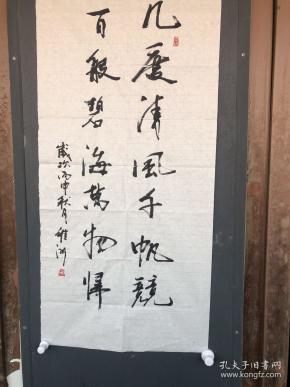 几度清风千帆竞
百般碧海万物归
岁次丙申秋月
孔夫子旧书网
www.kongfz.com